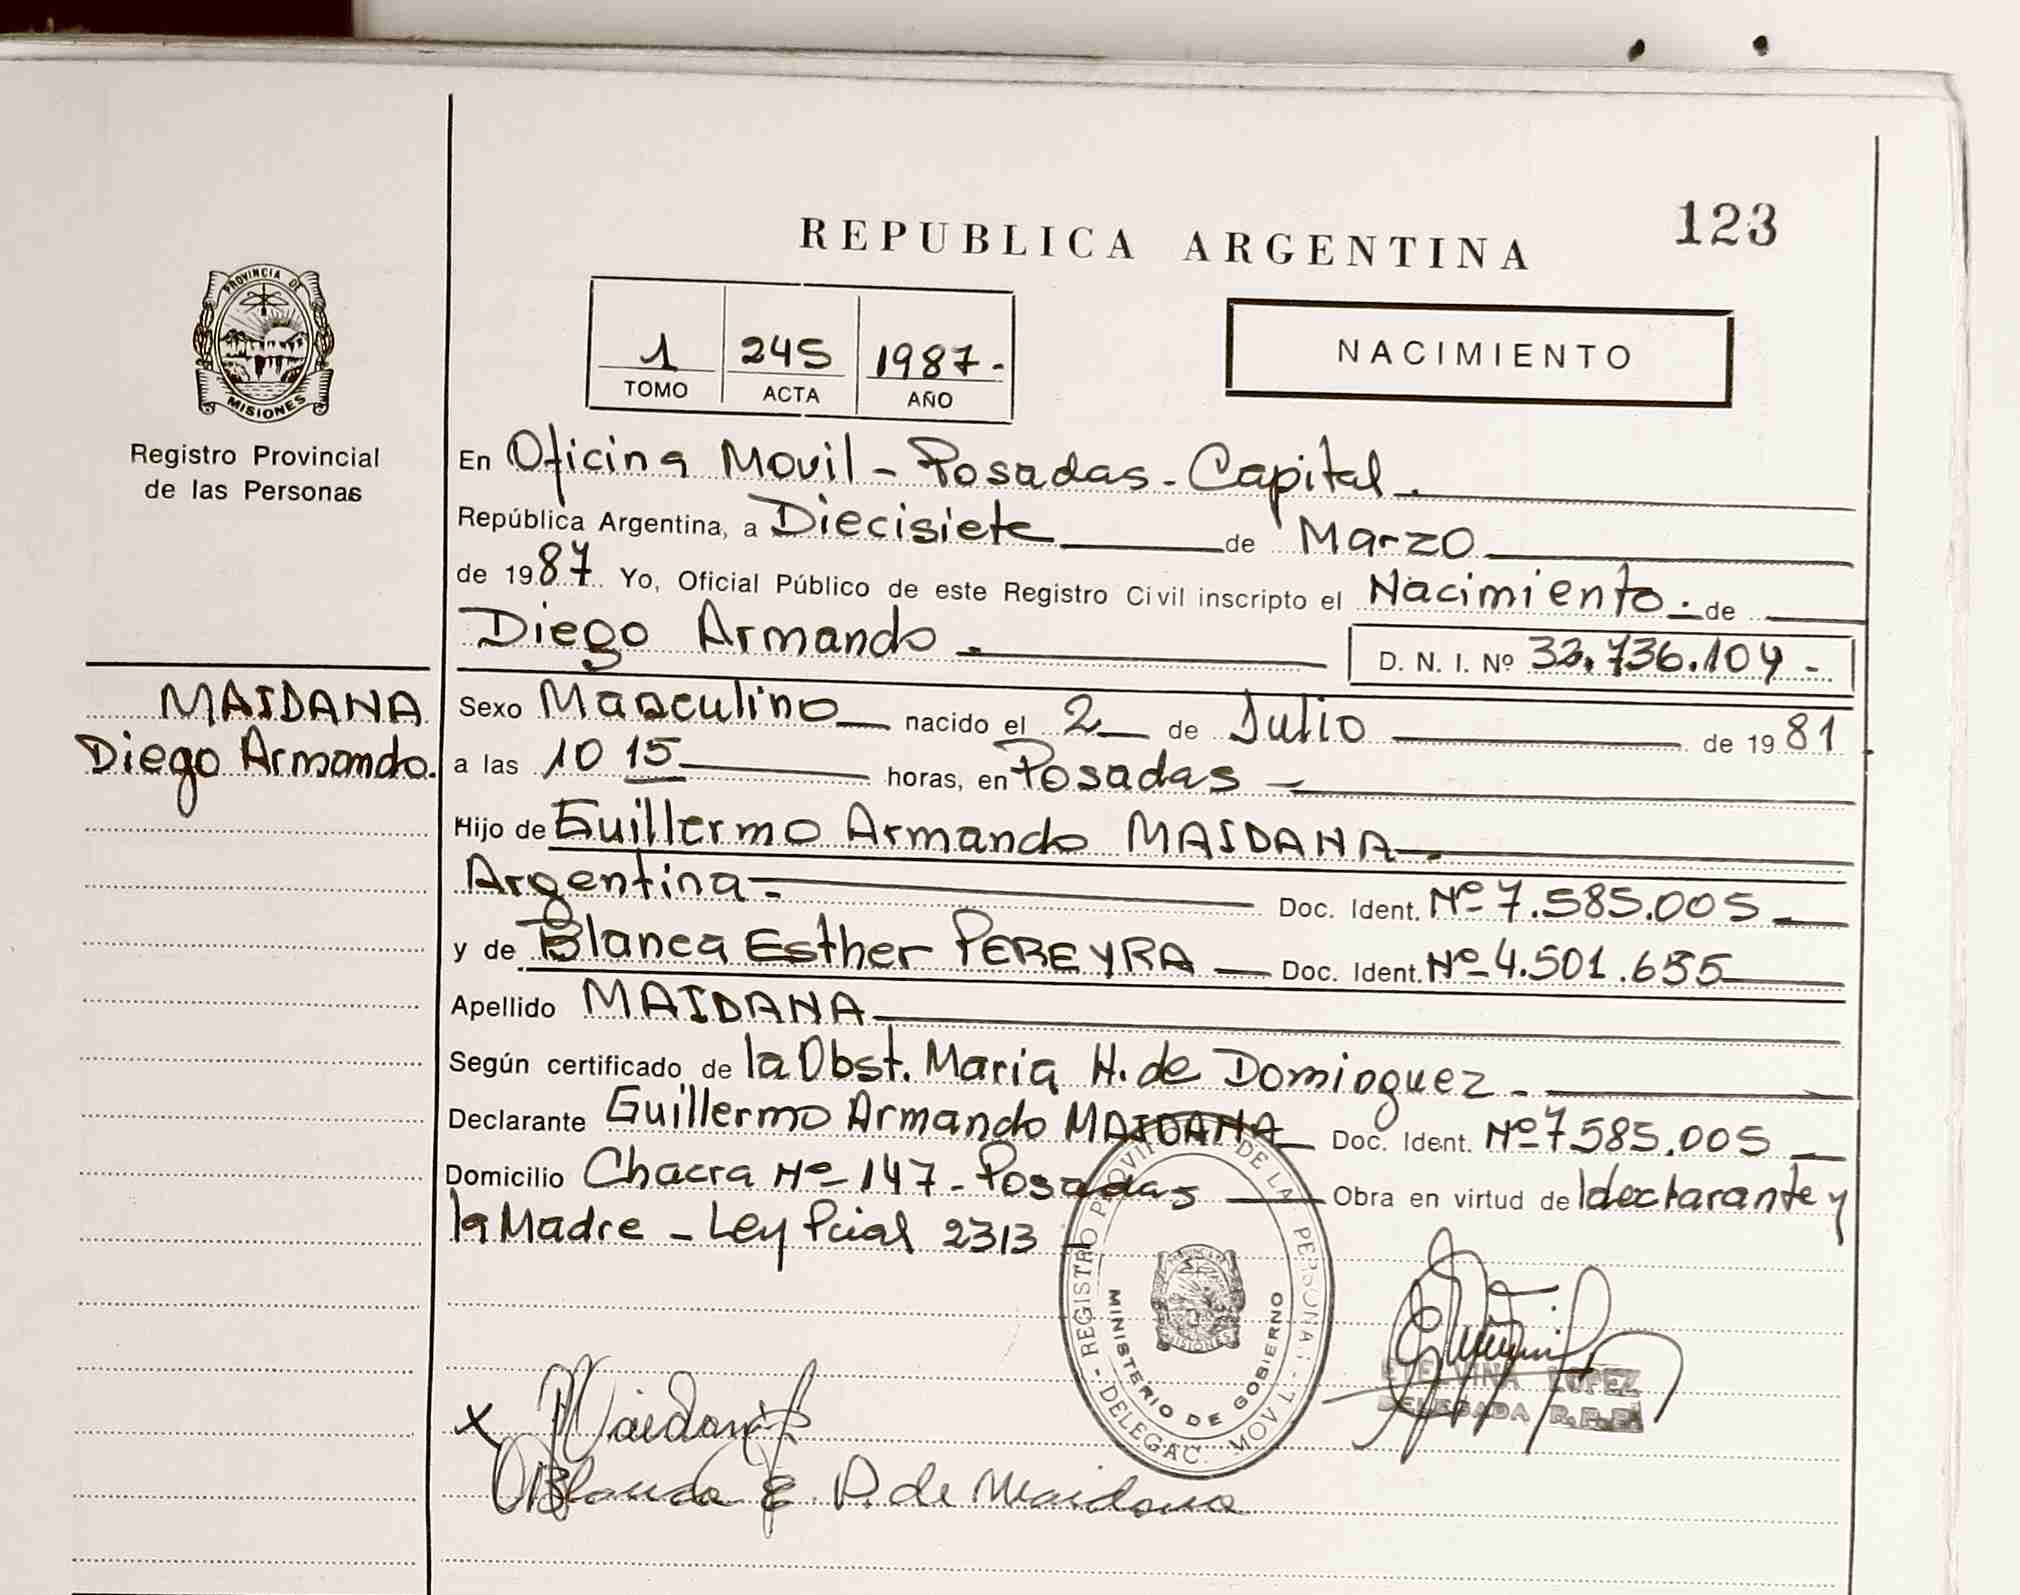 123
REPUBLICA ARGENTINA
PROVINCIA DE MISIONES
Registro Provincial
de las Personas
1 245 1987.-
TOMO ACTA AÑO
NACIMIENTO
En Oficina Movil - Posadas - Capital.
República Argentina, a Diecisiete de Marzo
de 1987 Yo, Oficial Público de este Registro Civil inscripto el Nacimiento.- de
Diego Armando.- D. N. I. Nº 32.736.104.-
MAIDANA
Diego Armando.
Sexo Masculino nacido el 2 de Julio de 1981
a las 10 15 horas, en Posadas -
Hijo de Guillermo Armando MAIDANA.
Argentina.- Doc. Ident. Nº 7.585.005
y de Blanca Esther PEREYRA - Doc. Ident. Nº 4.501.655
Apellido MAIDANA
Según certificado de la Obst. Maria H. de Dominguez.-
Declarante Guillermo Armando MAIDANA Doc. Ident. Nº 7585.005
Domicilio Chacra Nº 147 - Posadas Obra en virtud de declarante y
la Madre - Ley Pcial 2313 -
- REGISTRO PROVINCIAL DE LA PERSONAS - DELEGAC. MOVIL
MINISTERIO DE GOBIERNO
ETELVINA LOPEZ
DELEGADA R.P.P.
x Maidana
Blanca E P. de Maidana